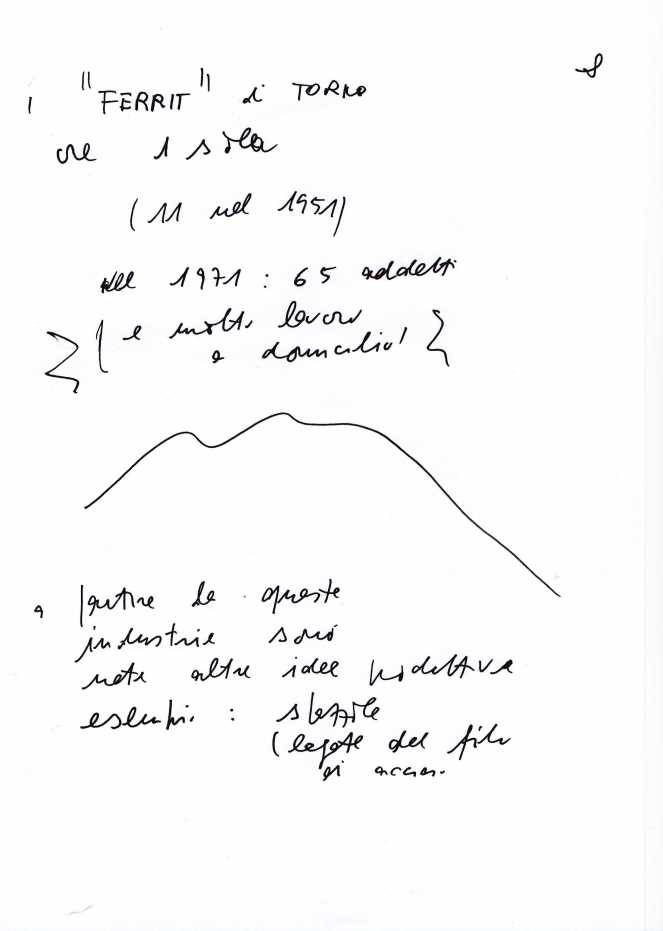 8
"FERRIT" di TORNO
ora 1 sola
(11 nel 1951)
nel 1971 : 65 addetti
{ e molto lavoro
a domicilio! }
a partire da queste
industrie sono
nate altre idee produttive
esempi : staffile
(legate del filo
di acciaio